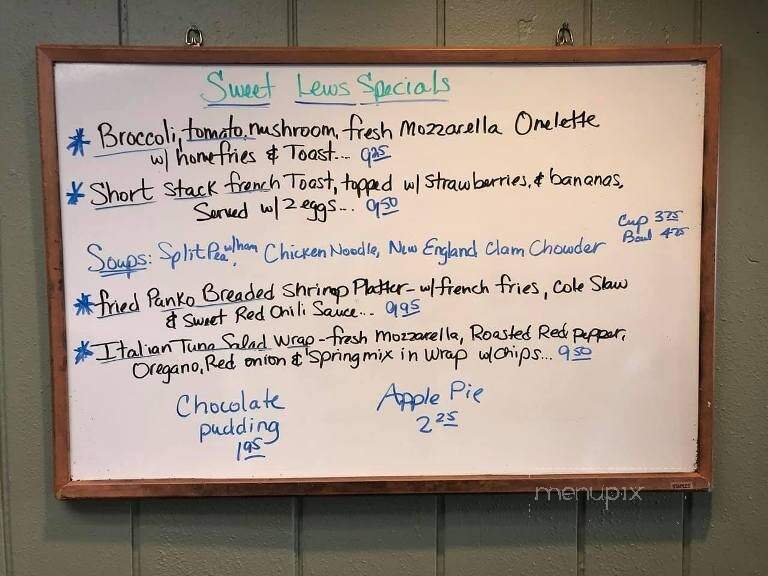 Sweet Lews Specials
* Broccoli, tomato, mushroom, fresh Mozzarella Omelette
w/ homefries & Toast... 9.25
* Short Stack french Toast, topped w/ strawberries, & bananas,
Served w/ 2 eggs... 9.50
Cup 3.75
Bowl 4.75
Soups: Split Pea w/ham, Chicken Noodle, New England Clam Chowder
* fried Panko Breaded Shrimp Platter - w/ french fries, Cole Slaw
& Sweet Red Chili Sauce... 9.95
* Italian Tuna Salad Wrap - fresh Mozzarella, Roasted Red pepper,
Oregano, Red onion & Spring mix in wrap w/ chips... 9.50
Chocolate
pudding
1.95
Apple Pie
2.25
menupix
STAPLES